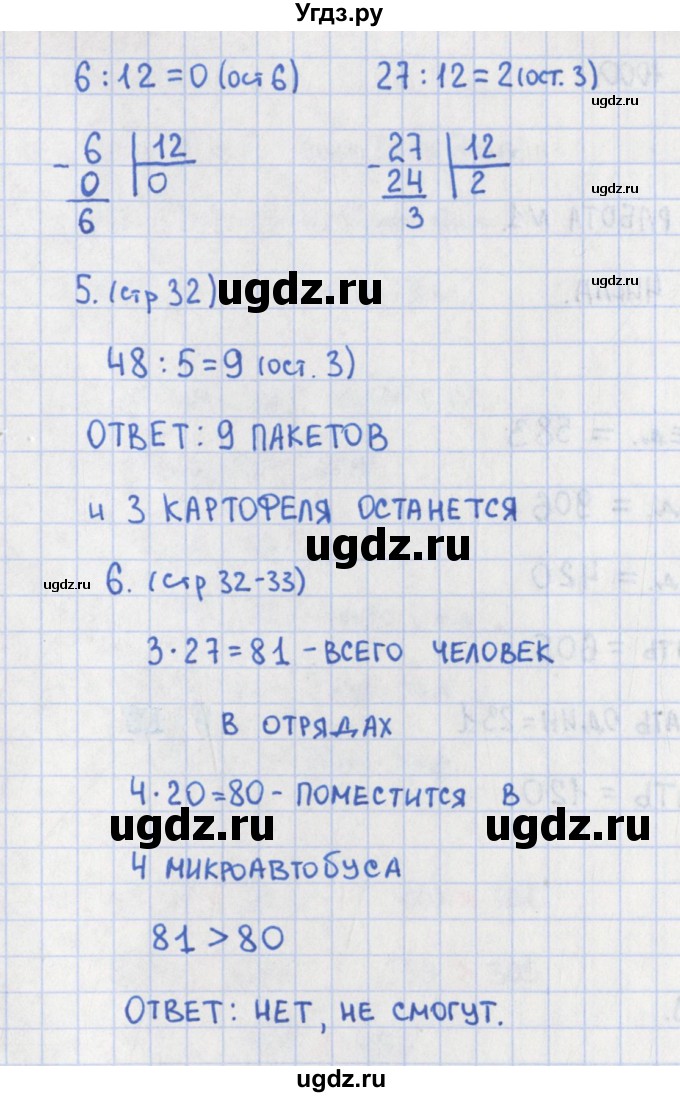 Угдз.ру
6 : 12 = 0 (ост 6) 27 : 12 = 2 (ост. 3)
ugdz.ru
- 6 | 12 - 27 | 12
0 | 0 24 | 2
ugdz.ru
6 3
РАБОТА №1.
5. (стр 32) ugdz.ru
ugdz.ru
48 : 5 = 9 (ост. 3)
ОТВЕТ: 9 ПАКЕТОВ
= 583
и 3 КАРТОФЕЛЯ ОСТАНЕТСЯ
= 906
ugdz.ru
ugdz.ru 6. (стр 32-33)
= 420
3 · 27 = 81 - ВСЕГО ЧЕЛОВЕК
В ОТРЯДАХ
ОДИН = 231
4 · 20 = 80 - ПОМЕСТИТСЯ В
= 120
ugdz.ru ugdz.ru
4 МИКРОАВТОБУСА
81 > 80
ОТВЕТ: НЕТ, НЕ СМОГУТ.
ugdz.ru